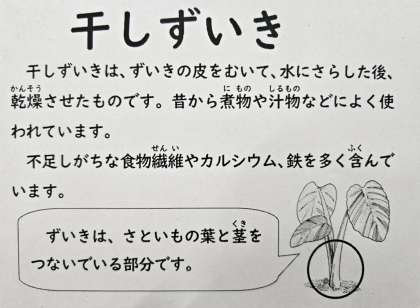 干しずいき
干しずいきは、ずいきの皮をむいて、水にさらした後、
かんそう　にもの　しるもの
乾燥させたものです。昔から煮物や汁物などによく使
われています。
せんい　ふく
不足しがちな食物繊維やカルシウム、鉄を多く含んで
います。
くき
ずいきは、さといもの葉と茎を
つないでいる部分です。